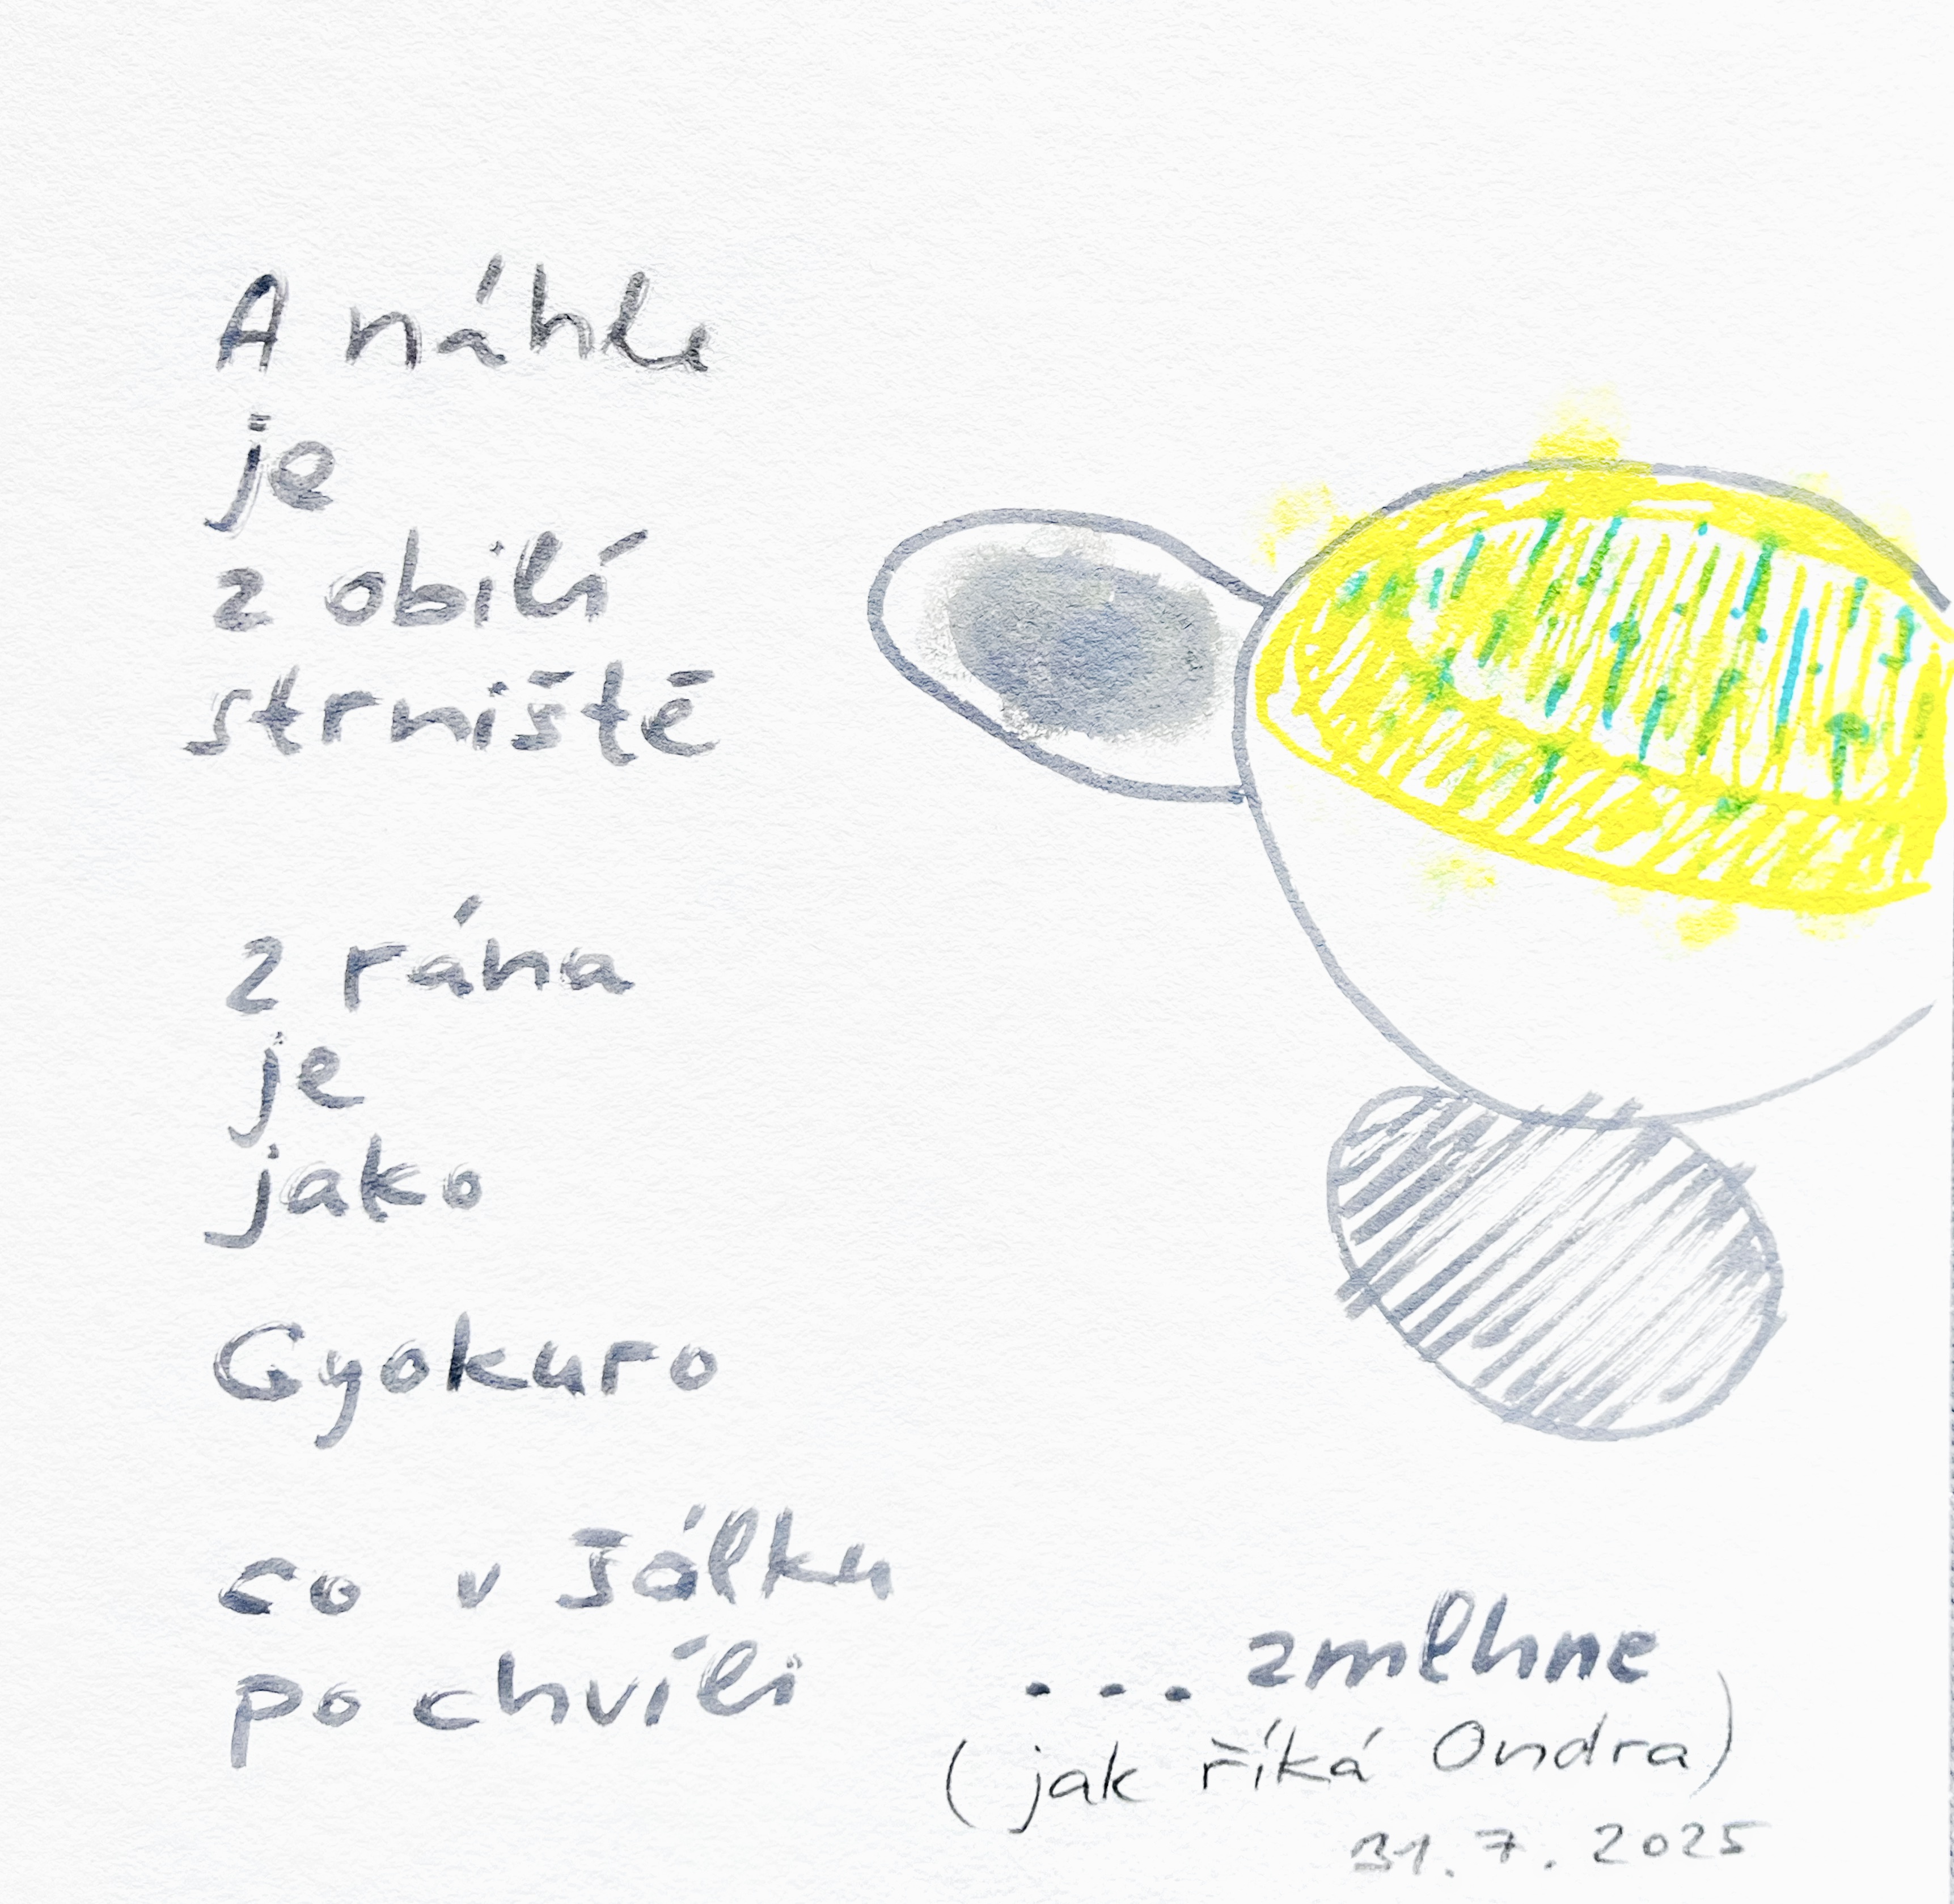 A náhle
je
z obilí
strniště
z rána
je
jako
Gyokuro
co v šálku
po chvíli
... zmlhne
(jak říká Ondra)
31.7.2025